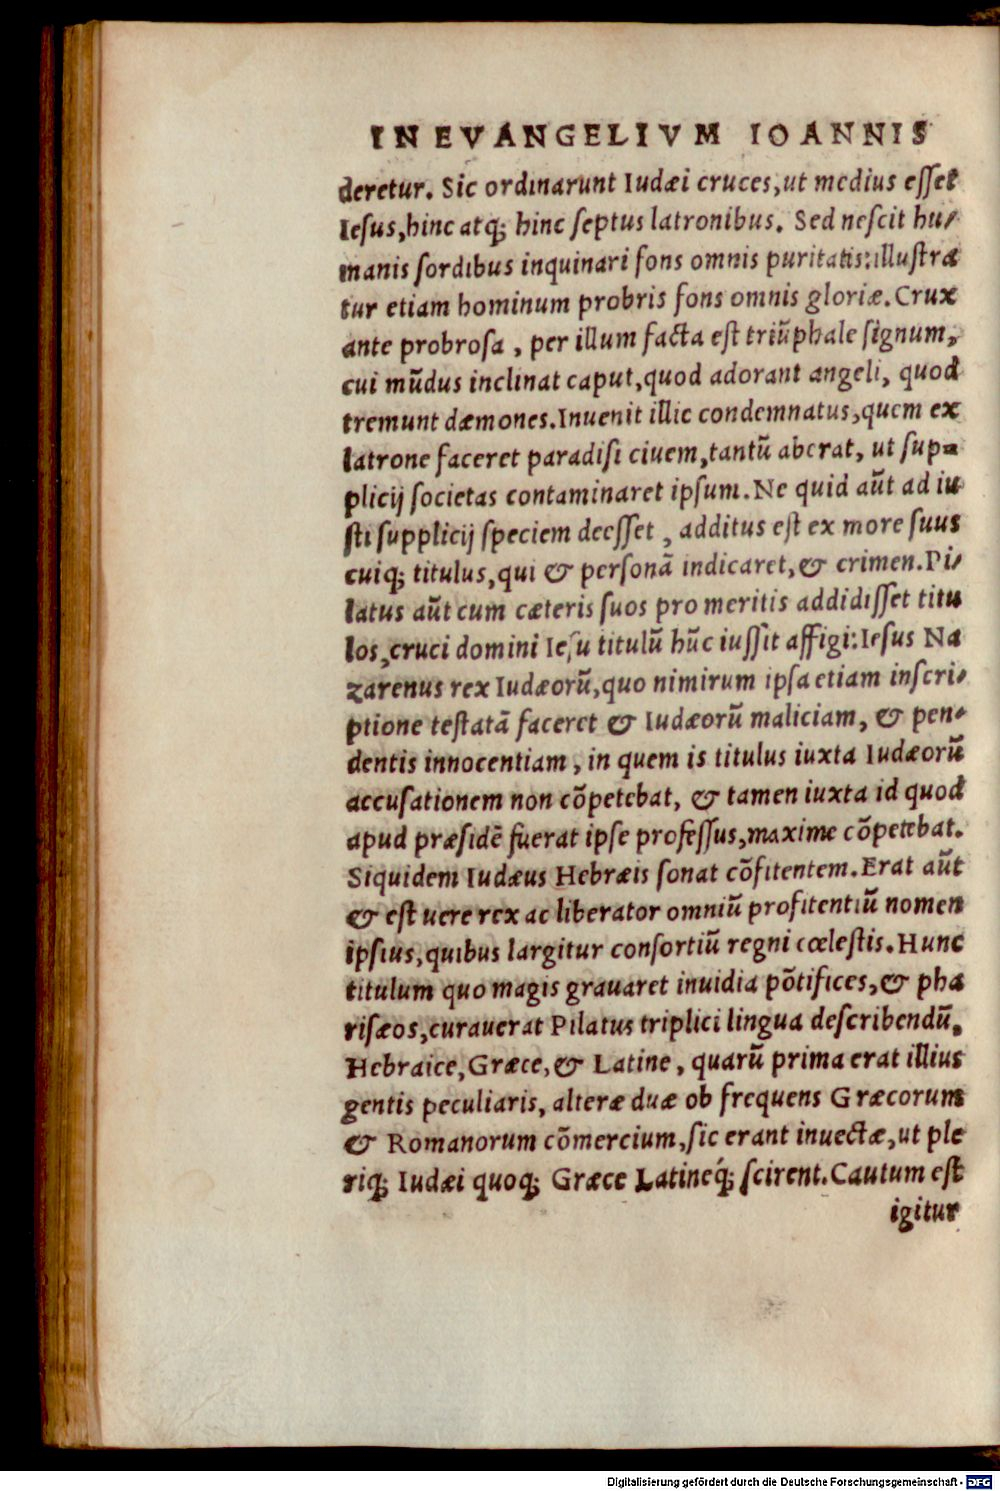 IN EVANGELIVM IOANNIS
deretur. Sic ordinarunt Iudæi cruces,ut medius esset
Iesus,hinc atq; hinc septus latronibus. Sed nescit hu-
manis sordibus inquinari fons omnis puritatis:illustra
tur etiam hominum probris fons omnis gloriæ.Crux
ante probrosa , per illum facta est triũphale signum,
cui mũdus inclinat caput,quod adorant angeli, quod
tremunt dæmones.Inuenit illic condemnatus,quem ex
latrone faceret paradisi ciuem,tantũ aberat, ut sup-
plicij societas contaminaret ipsum.Ne quid aũt ad iu
sti supplicij speciem deesset , additus est ex more suus
cuiq; titulus,qui & personã indicaret,& crimen.Pi-
latus aũt cum cæteris suos pro meritis addidisset titu
los,cruci domini Iesu titulũ hũc iussit affigi:Iesus Na
zarenus rex Iudæorũ,quo nimirum ipsa etiam inscri-
ptione testatã faceret & Iudæorũ maliciam, & pen-
dentis innocentiam, in quem is titulus iuxta Iudæorũ
accusationem non cõpetebat, & tamen iuxta id quod
apud præsidẽ fuerat ipse professus,maxime cõpetebat.
Siquidem Iudæus Hebræis sonat cõfitentem.Erat aũt
& est uere rex ac liberator omniũ profitentiũ nomen
ipsius,quibus largitur consortiũ regni cœlestis.Hunc
titulum quo magis grauaret inuidia põtifices,& pha
risæos,curauerat Pilatus triplici lingua describendũ,
Hebraice,Græce,& Latine, quarũ prima erat illius
gentis peculiaris, alteræ duæ ob frequens Græcorum
& Romanorum cõmercium,sic erant inuectæ,ut ple
riq; Iudæi quoq; Græce Latineq́; scirent.Cautum est
igitur
Digitalisierung gefördert durch die Deutsche Forschungsgemeinschaft - DFG